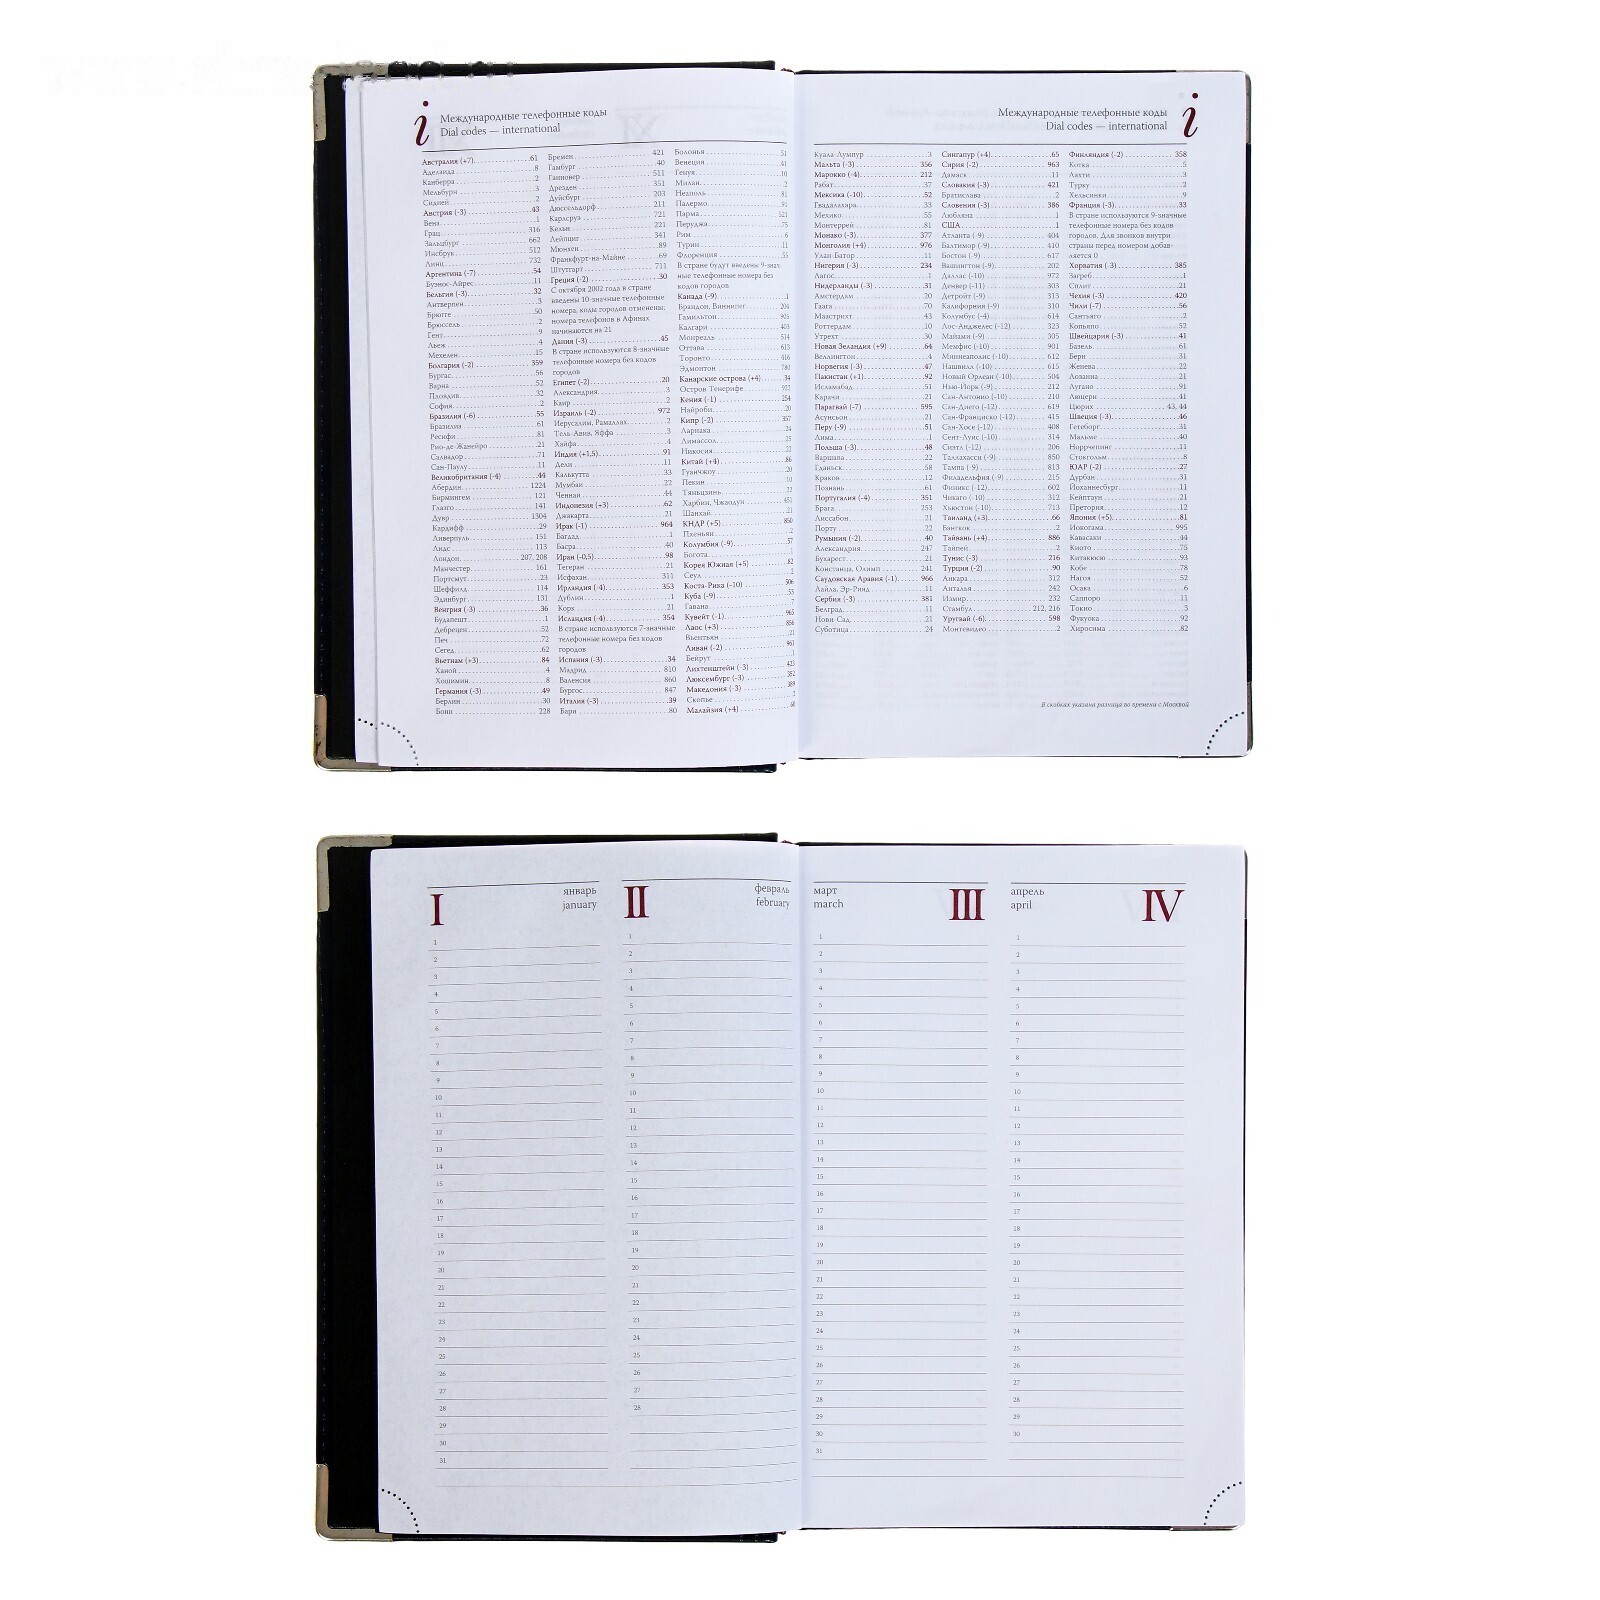 i
Международные телефонные коды
Dial codes — international
Австралия (+7) 61
Аделаида 8
Канберра 2
Мельбурн 3
Сидней 2
Австрия (-3) 43
Вена 1
Грац 316
Зальцбург 662
Инсбрук 512
Линц 732
Аргентина (-7) 54
Буэнос-Айрес 11
Бельгия (-3) 32
Антверпен 3
Брюгге 50
Брюссель 2
Гент 9
Льеж 4
Мехелен 15
Болгария (-2) 359
Бургас 56
Варна 52
Пловдив 32
София 2
Бразилия (-6) 55
Бразилиа 61
Ресифи 81
Рио-де-Жанейро 21
Салвадор 71
Сан-Паулу 11
Великобритания (-4) 44
Абердин 1224
Бирмингем 121
Глазго 141
Дувр 1304
Кардифф 29
Ливерпуль 151
Лидс 113
Лондон 207, 208
Манчестер 161
Портсмут 23
Шеффилд 114
Эдинбург 131
Венгрия (-3) 36
Будапешт 1
Дебрецен 52
Печ 72
Сегед 62
Вьетнам (+3) 84
Ханой 4
Хошимин 8
Германия (-3) 49
Берлин 30
Бонн 228
Бремен 421
Гамбург 40
Ганновер 511
Дрезден 351
Дуйсбург 203
Дюссельдорф 211
Карлсруэ 721
Кельн 221
Лейпциг 341
Мюнхен 89
Франкфурт-на-Майне 69
Штутгарт 711
Греция (-2) 30
С октября 2002 года в стране
введены 10-значные телефонные
номера, коды городов отменены;
номера телефонов в Афинах
начинаются на 21
Дания (-3) 45
В стране используются 8-значные
телефонные номера без кодов
городов
Египет (-2) 20
Александрия 3
Каир 2
Израиль (-2) 972
Иерусалим, Рамаллах 2
Тель-Авив, Яффа 3
Хайфа 4
Индия (+1,5) 91
Дели 11
Калькутта 33
Мумбаи 22
Ченнаи 44
Индонезия (+3) 62
Джакарта 21
Ирак (-1) 964
Багдад 1
Басра 40
Иран (-0,5) 98
Тегеран 21
Исфахан 311
Ирландия (-4) 353
Дублин 1
Корк 21
Исландия (-4) 354
В стране используются 7-значные
телефонные номера без кодов
городов
Испания (-3) 34
Мадрид 810
Валенсия 860
Бургос 847
Италия (-3) 39
Бари 80
Болонья 51
Венеция 41
Генуя 10
Милан 2
Неаполь 81
Палермо 91
Парма 521
Перуджа 75
Рим 6
Турин 11
Флоренция 55
В стране будут введены 9-знач-
ные телефонные номера без
кодов городов
Канада (-9) 1
Брандон, Виннипег 204
Гамильтон 905
Калгари 403
Монреаль 514
Оттава 613
Торонто 416
Эдмонтон 780
Канарские острова (+4) 34
Остров Тенерифе 922
Кения (-1) 254
Найроби 20
Кипр (-2) 357
Ларнака 24
Лимассол 25
Никосия 22
Китай (+4) 86
Гуанчжоу 20
Пекин 10
Тяньцзинь 22
Харбин, Чжаодун 451
Шанхай 21
КНДР (+5) 850
Пхеньян 2
Колумбия (-9) 57
Богота 1
Корея Южная (+5) 82
Сеул 2
Коста-Рика (-10) 506
Куба (-9) 53
Гавана 7
Кувейт (-1) 965
Лаос (+3) 856
Вьентьян 21
Ливан (-2) 961
Бейрут 1
Лихтенштейн (-3) 423
Люксембург (-3) 352
Македония (-3) 389
Скопье 2
Малайзия (+4) 60
Международные телефонные коды
Dial codes — international
i
Куала-Лумпур 3
Мальта (-3) 356
Марокко (-4) 212
Рабат 37
Мексика (-10) 52
Гвадалахара 33
Мехико 55
Монтеррей 81
Монако (-3) 377
Монголия (+4) 976
Улан-Батор 11
Нигерия (-3) 234
Лагос 1
Нидерланды (-3) 31
Амстердам 20
Гаага 70
Маастрихт 43
Роттердам 10
Утрехт 30
Новая Зеландия (+9) 64
Веллингтон 4
Норвегия (-3) 47
Пакистан (+1) 92
Исламабад 51
Карачи 21
Парагвай (-7) 595
Асунсьон 21
Перу (-9) 51
Лима 1
Польша (-3) 48
Варшава 22
Гданьск 58
Краков 12
Познань 61
Португалия (-4) 351
Брага 253
Лиссабон 21
Порту 22
Румыния (-2) 40
Александрия 247
Бухарест 21
Констанца, Олимп 241
Саудовская Аравия (-1) 966
Лайла, Эр-Рияд 11
Сербия (-3) 381
Белград 11
Нови-Сад 21
Суботица 24
Сингапур (+4) 65
Сирия (-2) 963
Дамаск 11
Словакия (-3) 421
Братислава 2
Словения (-3) 386
Любляна 1
США 1
Атланта (-9) 404
Балтимор (-9) 410
Бостон (-9) 617
Вашингтон (-9) 202
Даллас (-10) 972
Денвер (-11) 303
Детройт (-9) 313
Калифорния (-9) 310
Колумбус (-4) 614
Лос-Анджелес (-12) 323
Майами (-9) 305
Мемфис (-10) 901
Миннеаполис (-10) 612
Нашвилл (-10) 615
Новый Орлеан (-10) 504
Нью-Йорк (-9) 212
Сан-Антонио (-10) 210
Сан-Диего (-12) 619
Сан-Франциско (-12) 415
Сан-Хосе (-12) 408
Сент-Луис (-10) 314
Сиэтл (-12) 206
Таллахасси (-9) 850
Тампа (-9) 813
Филадельфия (-9) 215
Финикс (-12) 602
Чикаго (-10) 312
Хьюстон (-10) 713
Таиланд (+3) 66
Бангкок 2
Тайвань (+4) 886
Тайпей 2
Тунис (-3) 216
Турция (-2) 90
Анкара 312
Анталья 242
Измир 232
Стамбул 212, 216
Уругвай (-6) 598
Монтевидео 2
Финляндия (-2) 358
Котка 5
Лахти 3
Турку 2
Хельсинки 9
Франция (-3) 33
В стране используются 9-значные
телефонные номера без кодов
городов. Для звонков внутри
страны перед номером добав-
ляется 0
Хорватия (-3) 385
Загреб 1
Сплит 21
Чехия (-3) 420
Чили (-7) 56
Сантьяго 2
Копьяпо 52
Швейцария (-3) 41
Базель 61
Берн 31
Женева 22
Лозанна 21
Лугано 91
Люцерн 41
Цюрих 43, 44
Швеция (-3) 46
Гетеборг 31
Мальме 40
Норрчепинг 11
Стокгольм 8
ЮАР (-2) 27
Дурбан 31
Йоханнесбург 11
Кейптаун 21
Претория 12
Япония (+5) 81
Иокогама 995
Кавасаки 44
Киото 75
Китакюсю 93
Кобе 78
Нагоя 52
Осака 6
Саппоро 11
Токио 3
Фукуока 92
Хиросима 82
В скобках указана разница во времени с Москвой
I
январь
january
1
2
3
4
5
6
7
8
9
10
11
12
13
14
15
16
17
18
19
20
21
22
23
24
25
26
27
28
29
30
31
II
февраль
february
1
2
3
4
5
6
7
8
9
10
11
12
13
14
15
16
17
18
19
20
21
22
23
24
25
26
27
28
март
march
III
1
2
3
4
5
6
7
8
9
10
11
12
13
14
15
16
17
18
19
20
21
22
23
24
25
26
27
28
29
30
31
апрель
april
IV
1
2
3
4
5
6
7
8
9
10
11
12
13
14
15
16
17
18
19
20
21
22
23
24
25
26
27
28
29
30